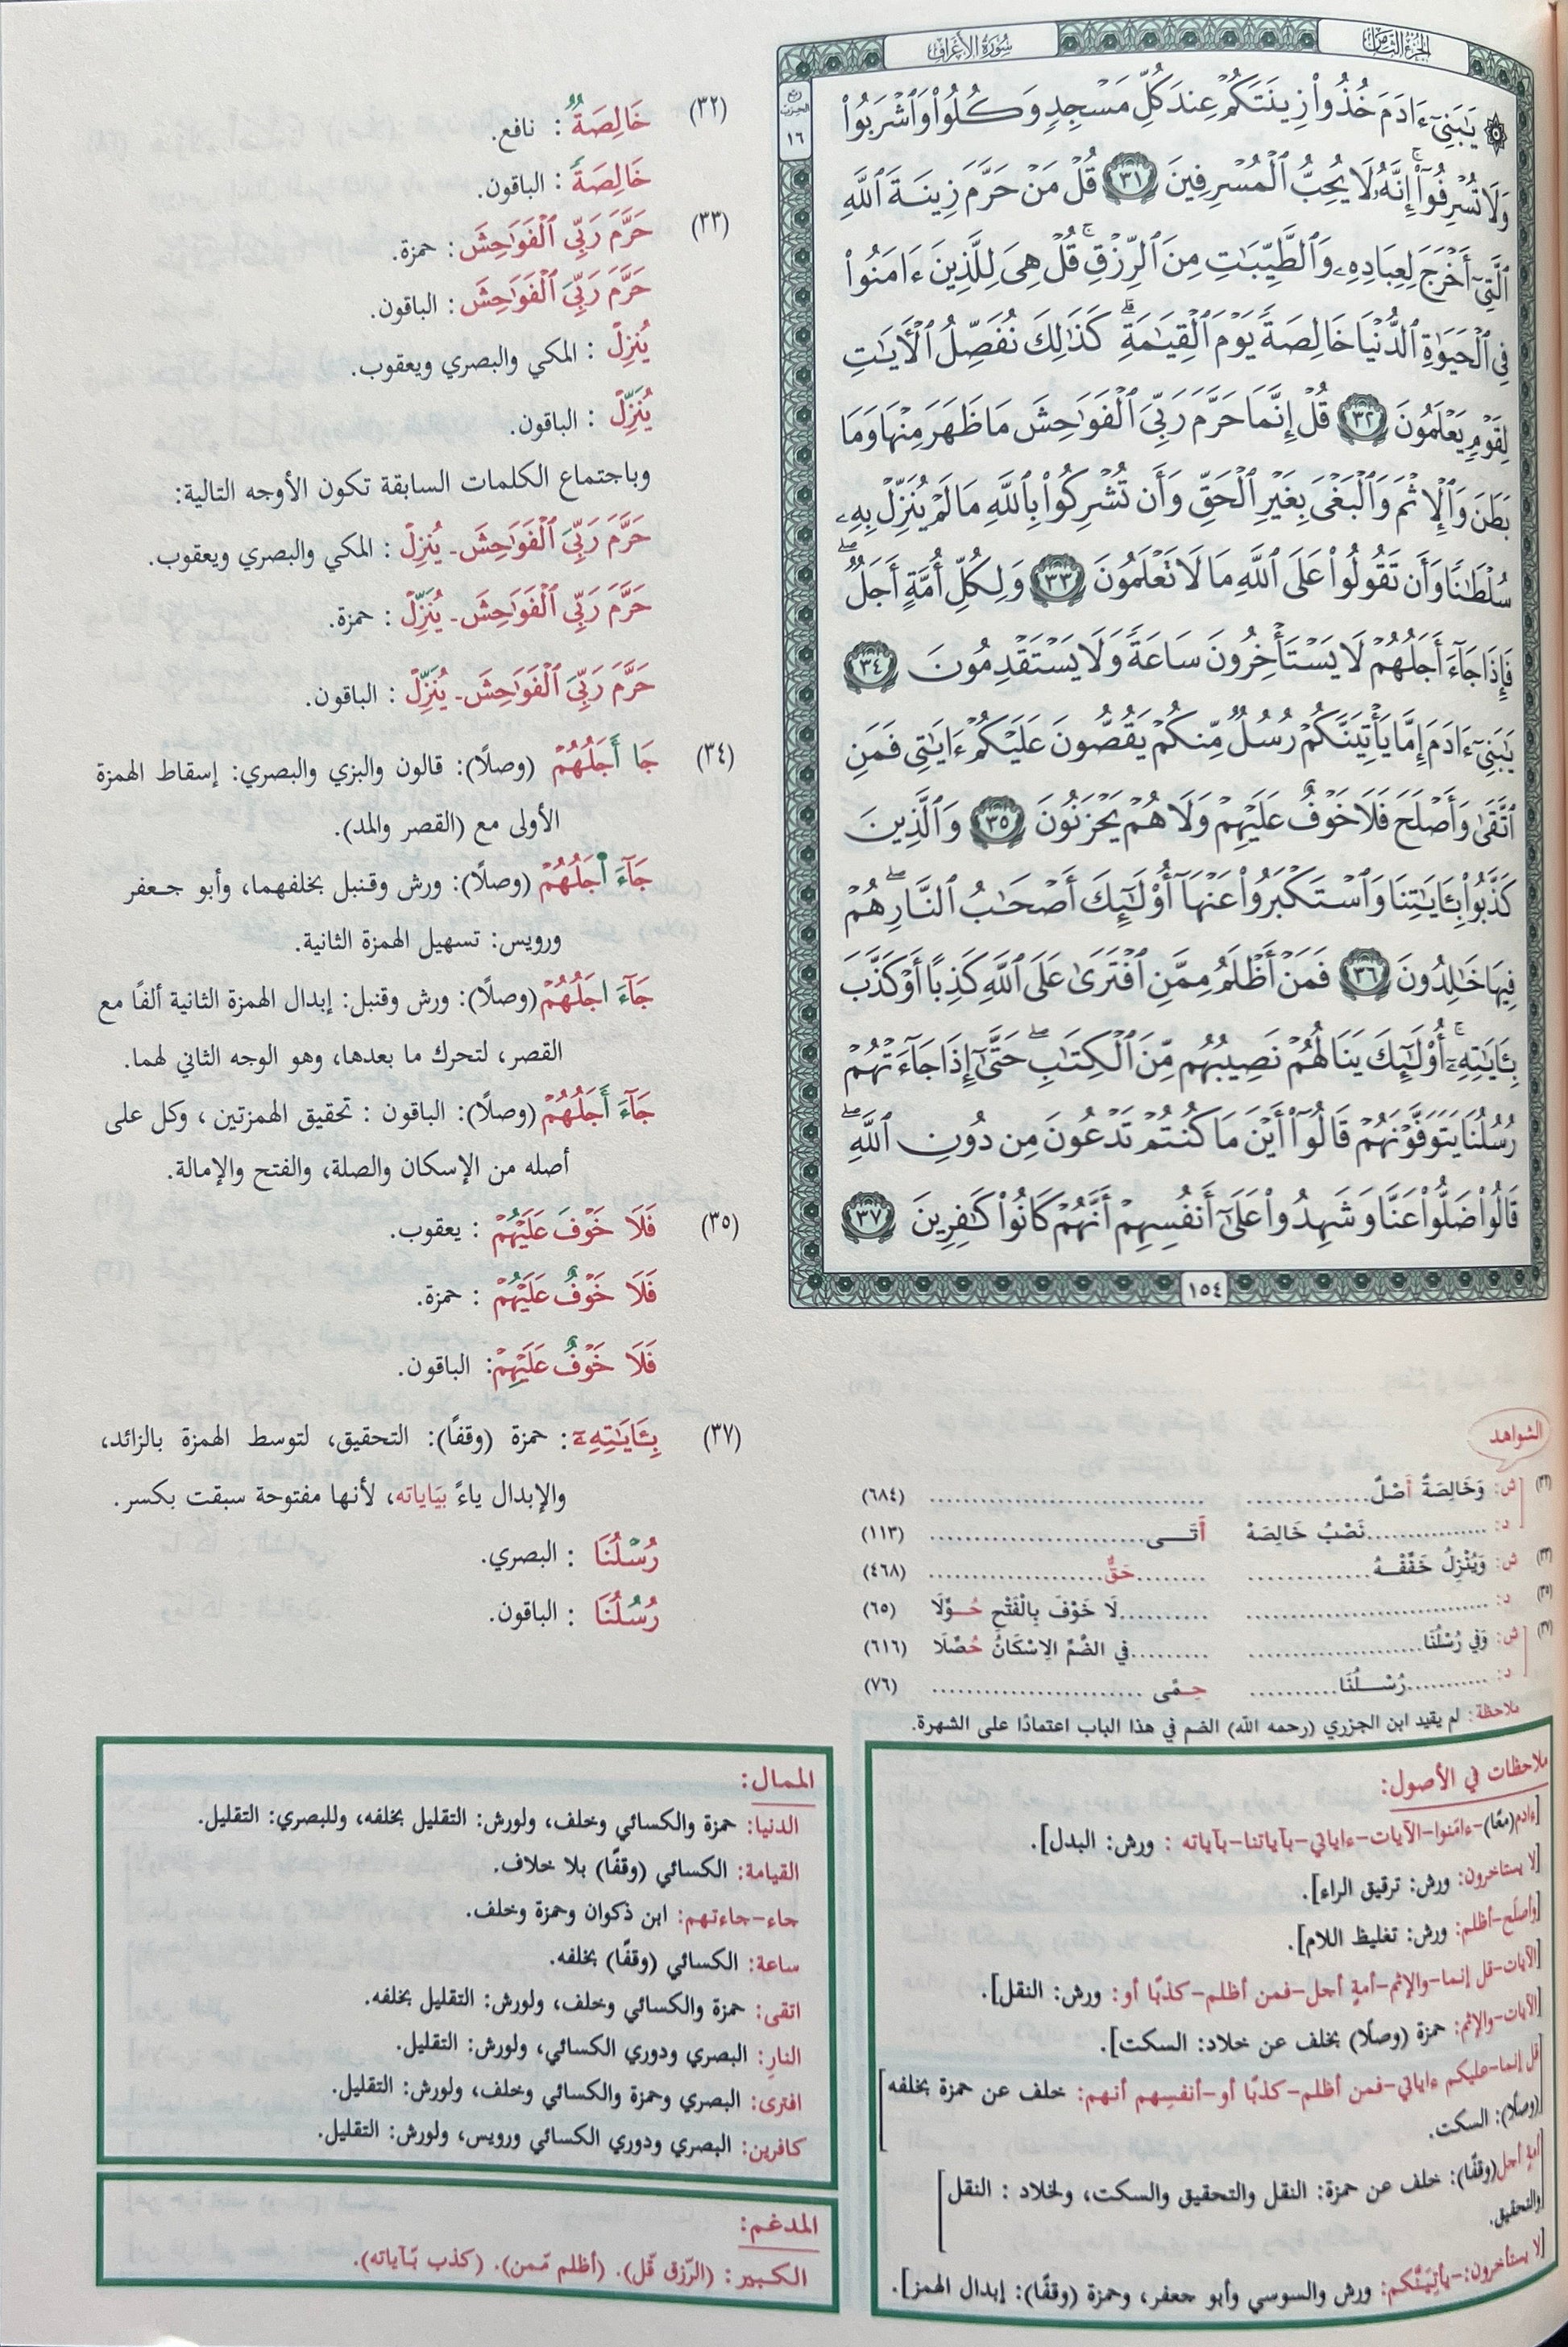 الجزء الثامن
سورة الأعراف
ربع الحزب ١٦
۞ يَٰبَنِيٓ ءَادَمَ خُذُواْ زِينَتَكُمۡ عِندَ كُلِّ مَسۡجِدٖ وَكُلُواْ وَٱشۡرَبُواْ
وَلَا تُسۡرِفُوٓاْۚ إِنَّهُۥ لَا يُحِبُّ ٱلۡمُسۡرِفِينَ ٣١ قُلۡ مَنۡ حَرَّمَ زِينَةَ ٱللَّهِ
ٱلَّتِيٓ أَخۡرَجَ لِعِبَادِهِۦ وَٱلطَّيِّبَٰتِ مِنَ ٱلرِّزۡقِۚ قُلۡ هِيَ لِلَّذِينَ ءَامَنُواْ
فِي ٱلۡحَيَوٰةِ ٱلدُّنۡيَا خَالِصَةٗ يَوۡمَ ٱلۡقِيَٰمَةِۗ كَذَٰلِكَ نُفَصِّلُ ٱلۡأٓيَٰتِ
لِقَوۡمٖ يَعۡلَمُونَ ٣٢ قُلۡ إِنَّمَا حَرَّمَ رَبِّيَ ٱلۡفَوَٰحِشَ مَا ظَهَرَ مِنۡهَا وَمَا
بَطَنَ وَٱلۡإِثۡمَ وَٱلۡبَغۡيَ بِغَيۡرِ ٱلۡحَقِّ وَأَن تُشۡرِكُواْ بِٱللَّهِ مَا لَمۡ يُنَزِّلۡ بِهِۦ
سُلۡطَٰنٗا وَأَن تَقُولُواْ عَلَى ٱللَّهِ مَا لَا تَعۡلَمُونَ ٣٣ وَلِكُلِّ أُمَّةٍ أَجَلٞۖ
فَإِذَا جَآءَ أَجَلُهُمۡ لَا يَسۡتَأۡخِرُونَ سَاعَةٗ وَلَا يَسۡتَقۡدِمُونَ ٣٤
يَٰبَنِيٓ ءَادَمَ إِمَّا يَأۡتِيَنَّكُمۡ رُسُلٞ مِّنكُمۡ يَقُصُّونَ عَلَيۡكُمۡ ءَايَٰتِي فَمَنِ
ٱتَّقَىٰ وَأَصۡلَحَ فَلَا خَوۡفٌ عَلَيۡهِمۡ وَلَا هُمۡ يَحۡزَنُونَ ٣٥ وَٱلَّذِينَ
كَذَّبُواْ بِـَٔايَٰتِنَا وَٱسۡتَكۡبَرُواْ عَنۡهَآ أُوْلَٰٓئِكَ أَصۡحَٰبُ ٱلنَّارِۖ هُمۡ
فِيهَا خَٰلِدُونَ ٣٦ فَمَنۡ أَظۡلَمُ مِمَّنِ ٱفۡتَرَىٰ عَلَى ٱللَّهِ كَذِبًا أَوۡ كَذَّبَ
بِـَٔايَٰتِهِۦٓۚ أُوْلَٰٓئِكَ يَنَالُهُمۡ نَصِيبُهُم مِّنَ ٱلۡكِتَٰبِۖ حَتَّىٰٓ إِذَا جَآءَتۡهُمۡ
رُسُلُنَا يَتَوَفَّوۡنَهُمۡ قَالُوٓاْ أَيۡنَ مَا كُنتُمۡ تَدۡعُونَ مِن دُونِ ٱللَّهِۖ
قَالُواْ ضَلُّواْ عَنَّا وَشَهِدُواْ عَلَىٰٓ أَنفُسِهِمۡ أَنَّهُمۡ كَانُواْ كَٰفِرِينَ ٣٧
١٥٤
(٣٢) خَالِصَةٞ : نافع.
خَالِصَةٗ : الباقون.
(٣٣) حَرَّمَ رَبِّي ٱلۡفَوَٰحِشَ : حمزة.
حَرَّمَ رَبِّيَ ٱلۡفَوَٰحِشَ : الباقون.
يُنزِلۡ : المكي والبصري ويعقوب.
يُنَزِّلۡ : الباقون.
وباجتماع الكلمات السابقة تكون الأوجه التالية:
حَرَّمَ رَبِّيَ ٱلۡفَوَٰحِشَ - يُنزِلۡ : المكي والبصري ويعقوب.
حَرَّمَ رَبِّي ٱلۡفَوَٰحِشَ - يُنَزِّلۡ : حمزة.
حَرَّمَ رَبِّيَ ٱلۡفَوَٰحِشَ - يُنَزِّلۡ : الباقون.
(٣٤) جَا أَجَلُهُمۡ (وصلًا): قالون والبزي والبصري: إسقاط الهمزة
الأولى مع (القصر والمد).
جَآءَ اجَلُهُمۡ (وصلًا): ورش وقنبل بخلفهما، وأبو جعفر
ورويس: تسهيل الهمزة الثانية.
جَآءَ اجَلُهُمۡ (وصلًا): ورش وقنبل: إبدال الهمزة الثانية ألفًا مع
القصر، لتحرك ما بعدها، وهو الوجه الثاني لهما.
جَآءَ أَجَلُهُمۡ (وصلًا): الباقون : تحقيق الهمزتين، وكل على
أصله من الإسكان والصلة، والفتح والإمالة.
(٣٥) فَلَا خَوۡفَ عَلَيۡهُمۡ : يعقوب.
فَلَا خَوۡفٌ عَلَيۡهُمۡ : حمزة.
فَلَا خَوۡفٌ عَلَيۡهِمۡ : الباقون.
(٣٧) بِـَٔايَٰتِهِۦٓ : حمزة (وقفًا): التحقيق، لتوسط الهمزة بالزائد،
والإبدال ياءً بيَاياته، لأنها مفتوحة سبقت بكسر.
رُسۡلُنَا : البصري.
رُسُلُنَا : الباقون.
الشواهد
(٣٢) ش: وَخَالِصَةٌ أَصْلٌ............. ............................ (٦٨٤)
د: ..............نَصْبُ خَالِصَةْ أَتَـــى........................ (١١٣)
(٣٣) ش: وَيُنْزِلُ خَفِّفْــهُ............. ........حَقٌّ.................. (٤٦٨)
(٣٥) د: .......................... ..........لَا خَوْفَ بِالْفَتْحِ حُــوِّلَا (٦٥)
(٣٧) ش: وَفِي رُسْلُنَا................... .........في الضَّمِّ الِاسْكَانُ حُصِّلَا (٦١٦)
د: ...........رُسْــــلُنَا.......... حِــمًى ........................ (٧٦)
ملاحظة: لم يقيد ابن الجزري (رحمه الله) الضم في هذا الباب اعتمادًا على الشهرة.
ملاحظات في الأصول:
[ءادم(معًا)-ءامنوا-الآيات-ءاياتي-بآياتنا-بآياته : ورش: البدل].
[لا يستاخرون: ورش: ترقيق الراء].
[وأصلح-أظلم: ورش: تغليظ اللام].
[الآيات-قل إنما-والإثم-أمةٍ أجل-فمن أظلم-كذبًا أو: ورش: النقل].
[الآيات-والإثم: حمزة (وصلًا) بخلف عن خلاد: السكت].
[قل إنما-عليكم ءاياتي-فمن أظلم-كذبًا أو-أنفسهم أنهم: خلف عن حمزة بخلفه
(وصلًا): السكت.]
[أمةٍ أجل(وقفًا): خلف عن حمزة: النقل والتحقيق والسكت، ولخلاد : النقل
والتحقيق.]
[لا يستأخرون:-يأتِيَنَّكم: ورش والسوسي وأبو جعفر، وحمزة (وقفًا): إبدال الهمز].
الممال:
الدنيا: حمزة والكسائي وخلف، ولورش: التقليل بخلفه، وللبصري: التقليل.
القيامة: الكسائي (وقفًا) بلا خلاف.
جاء-جاءتهم: ابن ذكوان وحمزة وخلف.
ساعة: الكسائي (وقفًا) بخلفه.
اتقى: حمزة والكسائي وخلف، ولورش: التقليل بخلفه.
النارِ: البصري ودوري الكسائي، ولورش: التقليل.
افترى: البصري وحمزة والكسائي وخلف، ولورش: التقليل.
كافرين: البصري ودوري الكسائي ورويس، ولورش: التقليل.
المدغم:
الكبير: (الرّزق قّل). (أظلم مّمن). (كذب بّآياته).